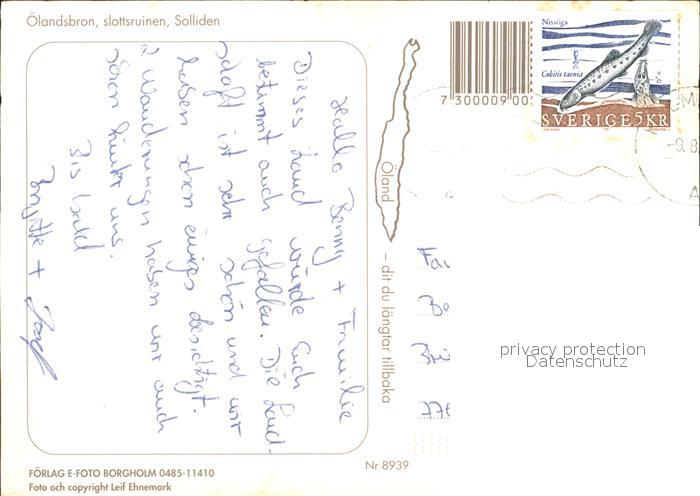 Ölandsbron, slottsruinen, Solliden
Hallo Benny + Familie
Dieses Land würde Euch
bestimmt auch gefallen. Die Land-
schaft ist sehr schön und wir
haben schon einiges besichtigt.
2 Wanderungen haben wir auch
schon hinter uns.
Bis bald
Brigitte + Josef
FÖRLAG E-FOTO BORGHOLM 0485-11410
Foto och copyright Leif Ehnemark
Öland – dit du längtar tillbaka
Nr 8939
7 300009 00
Nissöga
Cobitis taenia
SVERIGE 5 KR
privacy protection
Datenschutz